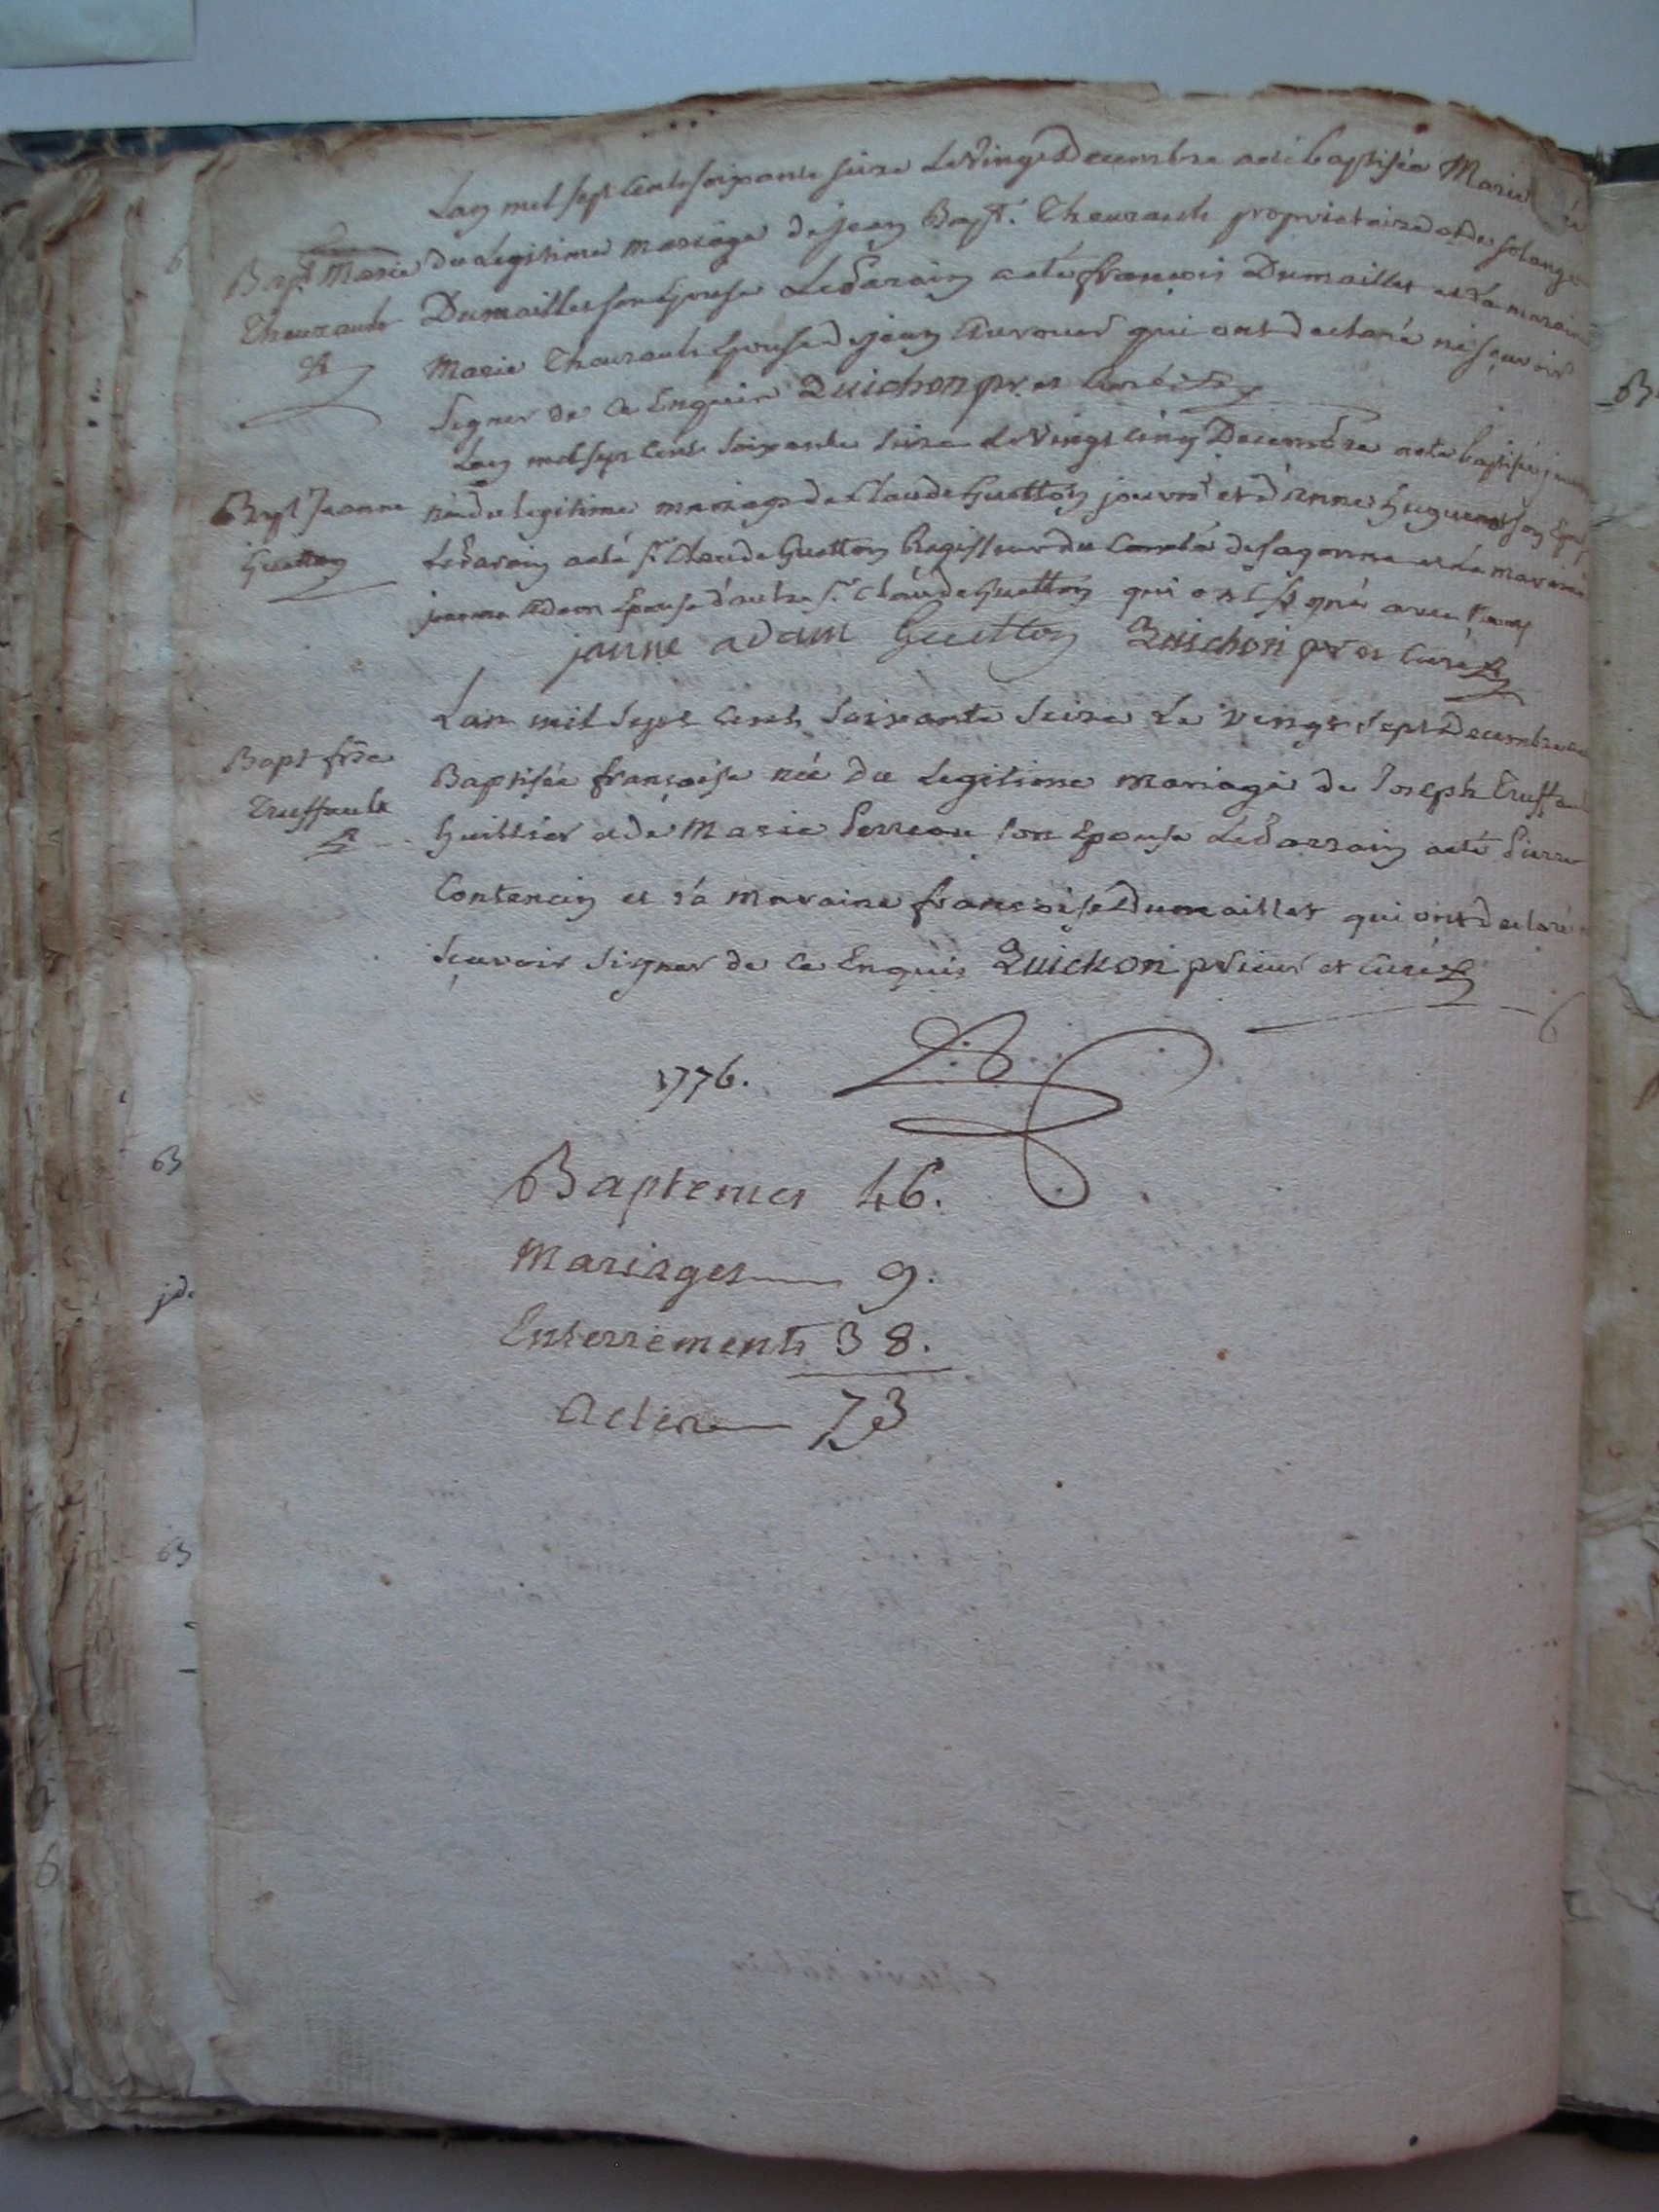 Lan mil sept cent soixante seize Le Vingt Decembre a été baptiséé Marie née
Bapt. Marie
Theurault
du Legitime mariage de jean Bapt. Theurault proprietaire et de solange
Dumailles son Epouse Le Parain a été francois Dumailles et La maraine
Marie Theurault Epouse de jean auroued qui ont declaré ne sçavoir
signer de ce Enquis Quichon pr. et Curé
Lan mil sept cent Soixante seize Le Vingt cinq Decembre a été baptiséé jeanne
Bapt Jeanne
Guetton
née du legitime mariage de Claude Guetton journr et d'anne huguenot son Ep
Le Parain a été Sr Claude Guetton Regisseur du Comté de sagonne et La maraine
jeanne adam Epouse d'autre Sr Claude Guetton qui ont signé avec nous
janne adam Guetton Quichon pr et Curé
Bapt frse
Truffault
Lan mil Sept Cent Soixante Seize Le Vingt Sept Decembre a été
Baptiséé françoise née du Legitime mariage de Joseph Truffault
huillier et de Marie Perreau son Epouse Le Parrain a été Pierre
Contencin et La maraine françoise Dumailles qui ont declaré
Sçavoir Signer de ce Enquis Quichon prieur et Curé
1776.
Baptemes 46.
Mariages 9.
Enterrements 38.
Actes 73